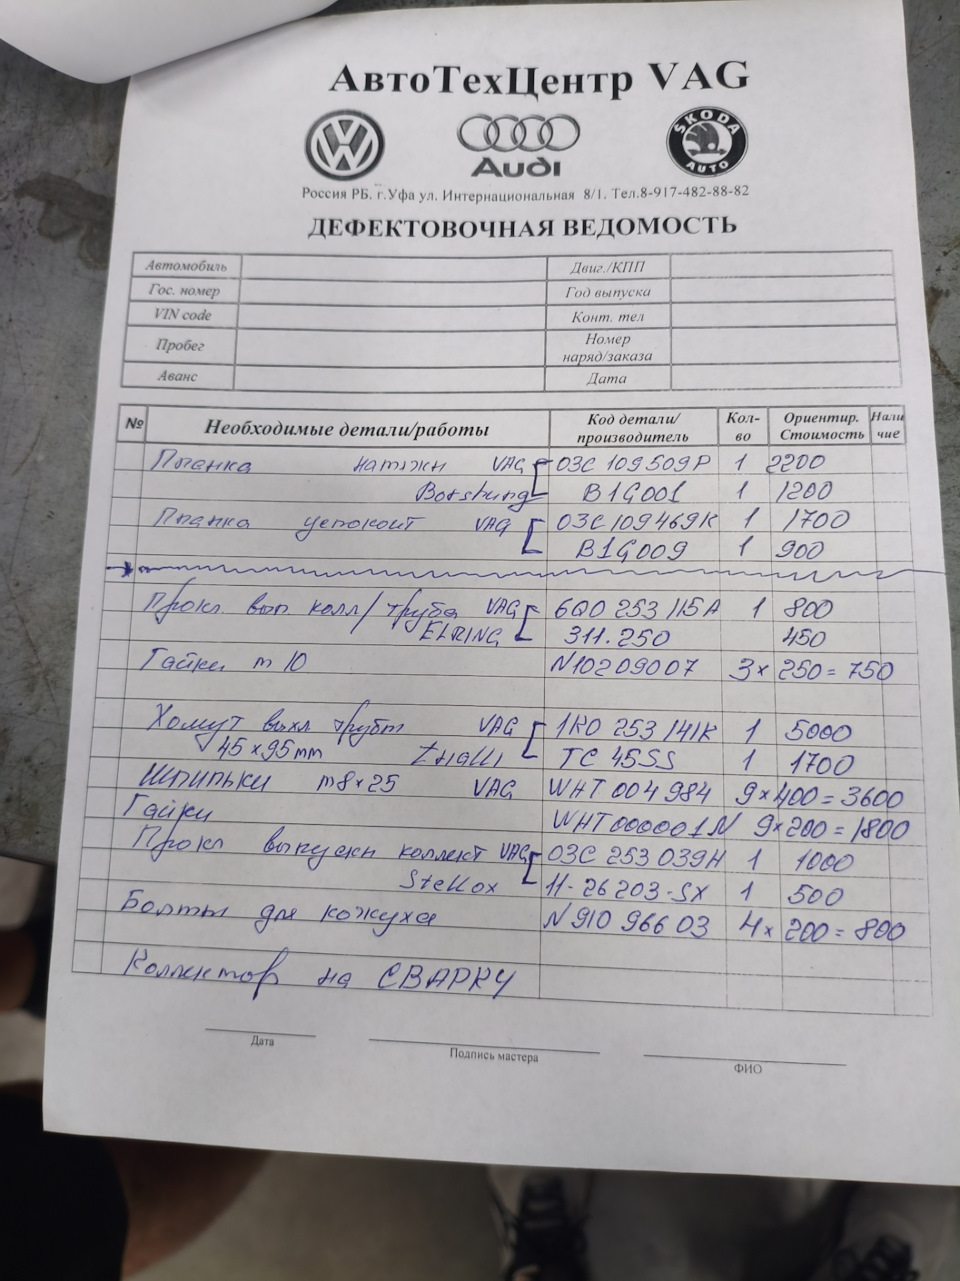 АвтоТехЦентр VAG
VW Audi ŠKODA AUTO
Россия РБ. г.Уфа ул. Интернациональная 8/1. Тел.8-917-482-88-82
ДЕФЕКТОВОЧНАЯ ВЕДОМОСТЬ
Автомобиль Двиг./КПП
Гос. номер Год выпуска
VIN code Конт. тел
Пробег Номер наряд/заказа
Аванс Дата
№ Необходимые детали/работы Код детали/производитель Кол-во Ориентир. Стоимость Наличие
Планка натяжн VAG 03C 109509P 1 2200
Borsehung B1G001 1 1200
Планка успокоит VAG 03C109469K 1 1700
B1G009 1 900
Прокл. вып колл/труба VAG 6Q0 253 115A 1 800
ELRING 311.250 450
Гайки m 10 N10209007 3 x 250 = 750
Хомут выхл трубы VAG 1K0 253 141K 1 5000
45 x 95 mm TC 45SS 1 1700
Шпильки m8 x 25 VAG WHT 004 984 9 x 400 = 3600
Гайки WHT000001N 9 x 200 = 1800
Прокл выпускн коллект VAG 03C 253 039H 1 1000
Stellox 11-26203-SX 1 500
Болты для кожуха N 910 966 03 4 x 200 = 800
Коллектор на СВАРКУ
Дата Подпись мастера ФИО